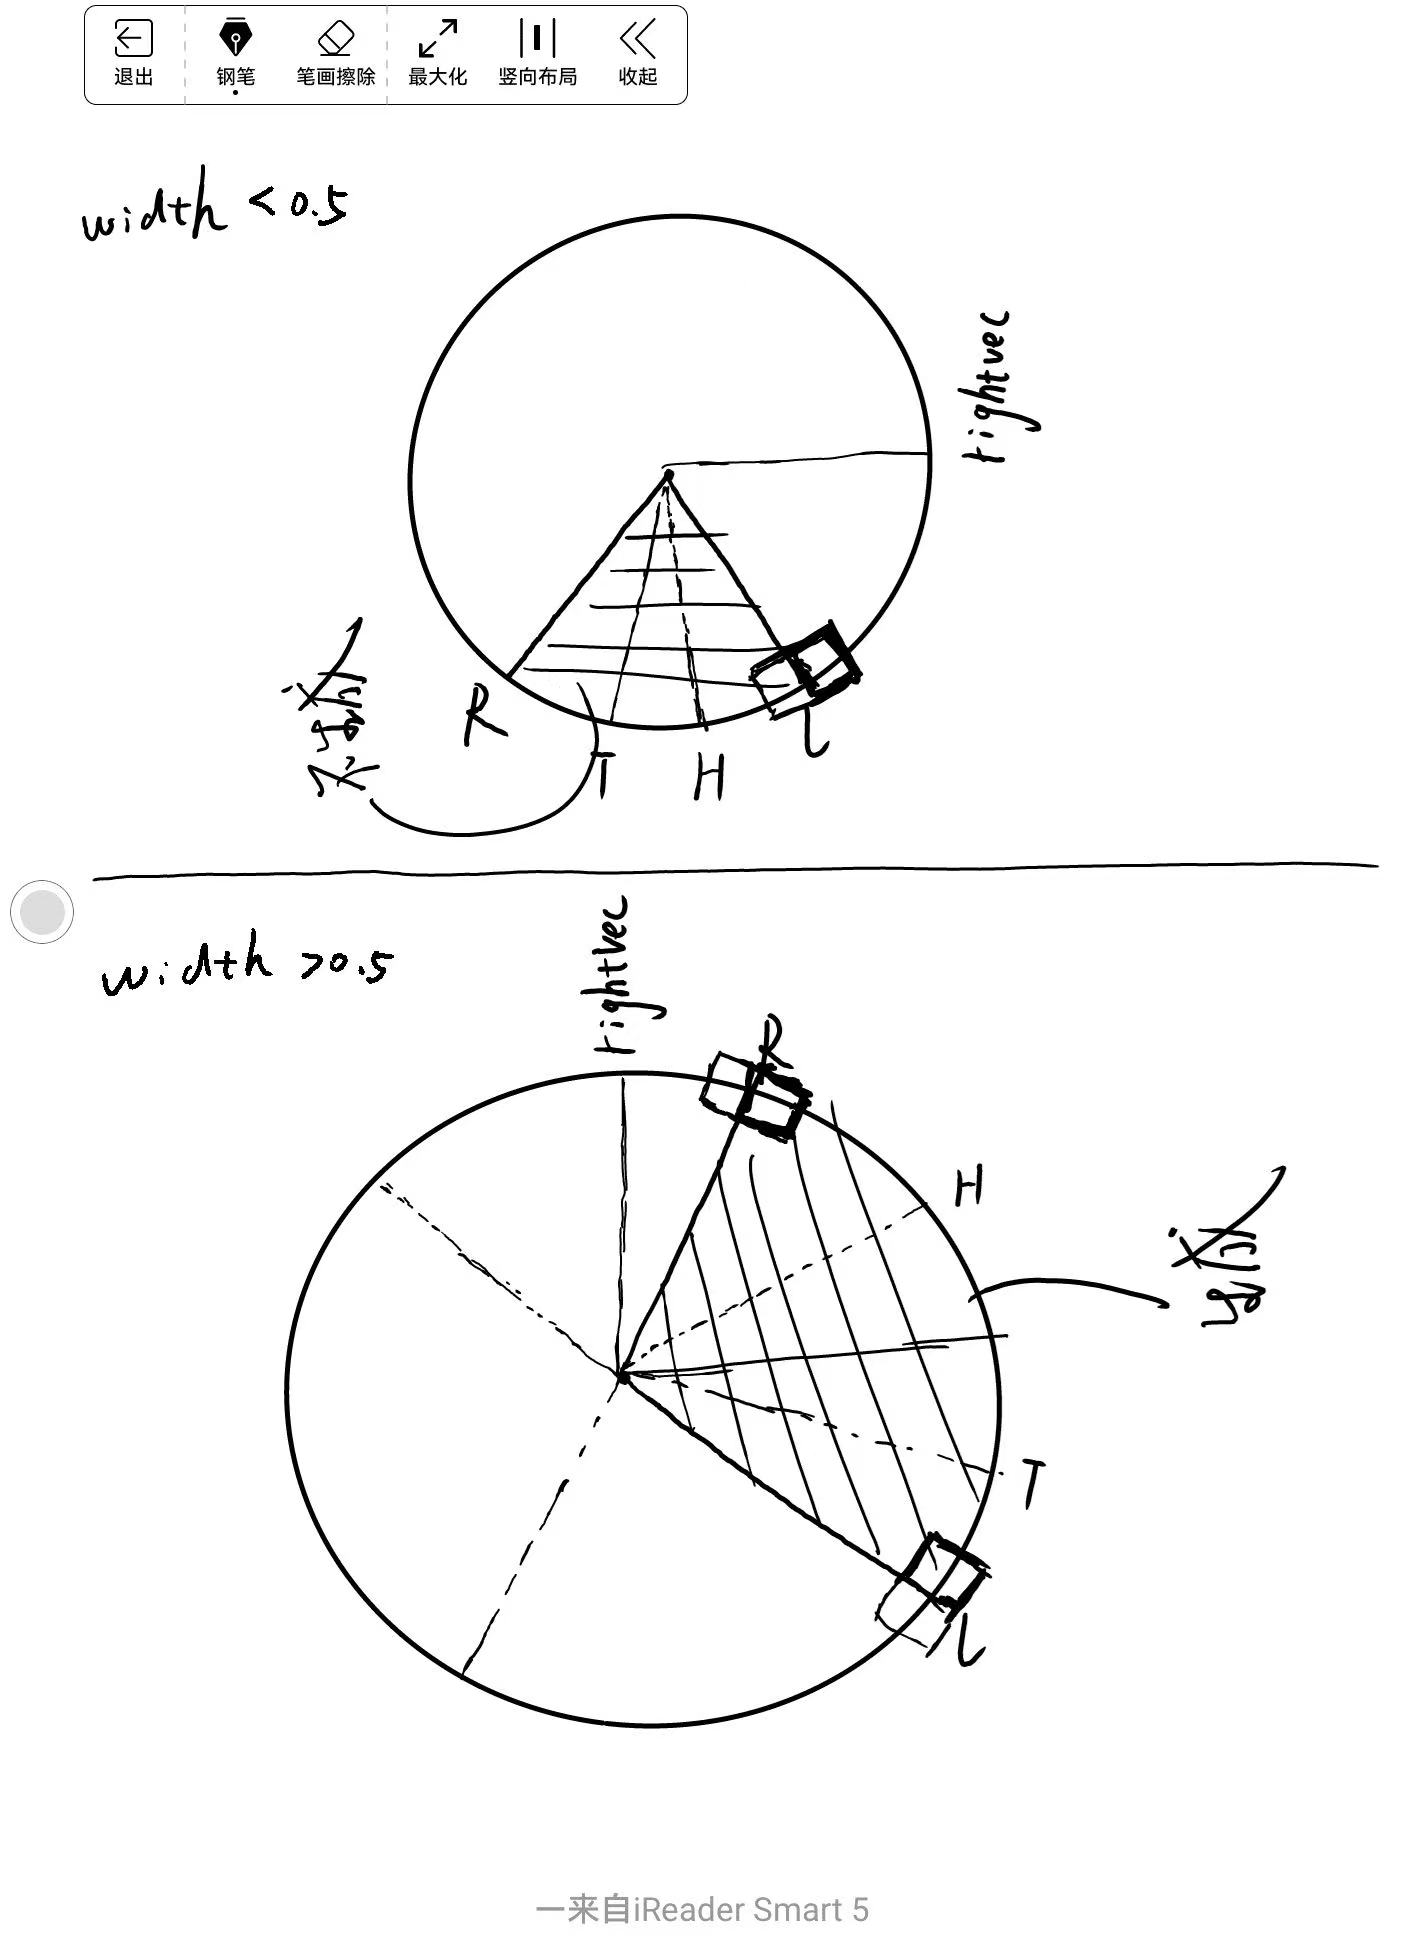 退出 钢笔 笔画擦除 最大化 竖向布局 收起
width < 0.5
rightvec
R
T
H
L
width > 0.5
rightvec
R
H
T
L
一来自iReader Smart 5